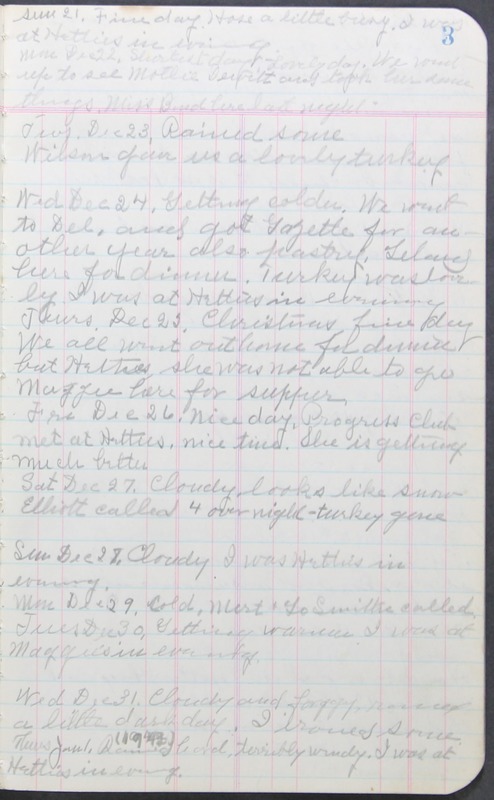 3
Sun 21. Fine day. Hose a little busy. I was
at Hetties in evening
Mon Dec 22, Shortest day. Lovely day. We went
up to see Mother and took her some
things. Miss Bud here last night.
Tues. Dec 23, Rained some
Wilson gave us a lovely turkey
Wed Dec 24, Getting colder. We went
to Del, and got Gazette for an-
other year also pastry. Leland
here for dinner. Turkey was love
ly I was at Hetties in evening
Thurs. Dec 25, Christmas, fine day
We all went out home for dinner
but Hettie, she was not able to go
Maggie here for supper
Fri Dec 26, Nice day, Progress Club
met at Hetties, nice time. She is getting
much better
Sat Dec 27. Cloudy, looks like snow
Elliott called 4 over night-turkey gone
Sun Dec 28, Cloudy I was Hetties in
evening.
Mon Dec 29, Cold, Mert & Lo Smith called
Tues Dec 30, Getting warmer I was at
Maggies in evening.
Wed Dec 31. Cloudy and foggy,
a little dark day. I ironed some
Thurs, Jan 1, (1943) Rained hard, terribly windy. I was at
Hetties in eveng.